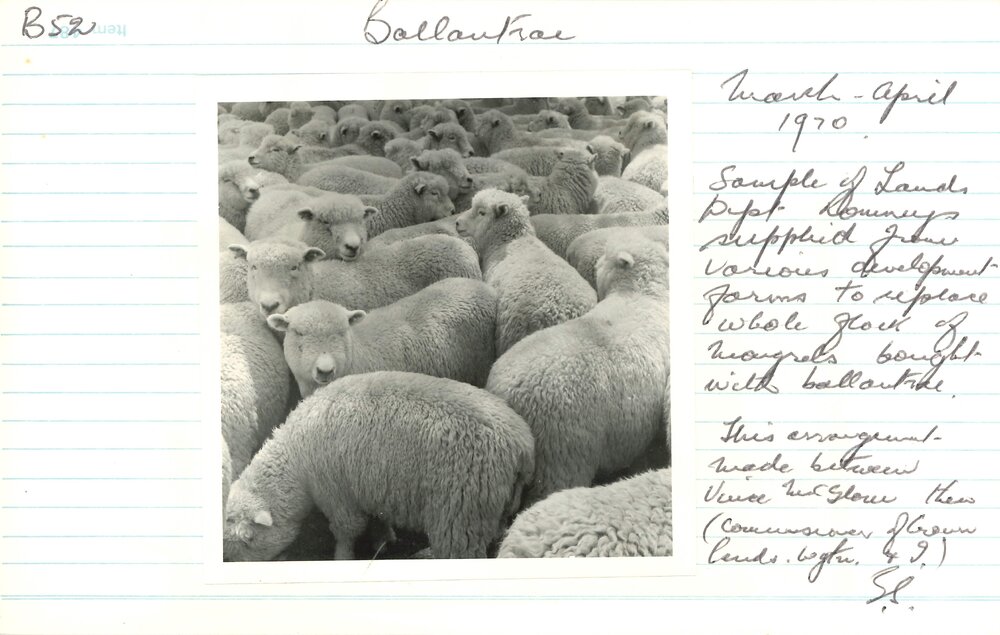 B52
Item 484
Ballantrae
March - April
1970.
Sample of Lands
Dept Romneys
supplied from
various development
farms to replace
whole flock of
Mongrels bought
with ballantrae.
This arrangement
made between
Vince McGlone then
(Commissioner of Crown
Lands. Wgtn. & I.)
S.S.